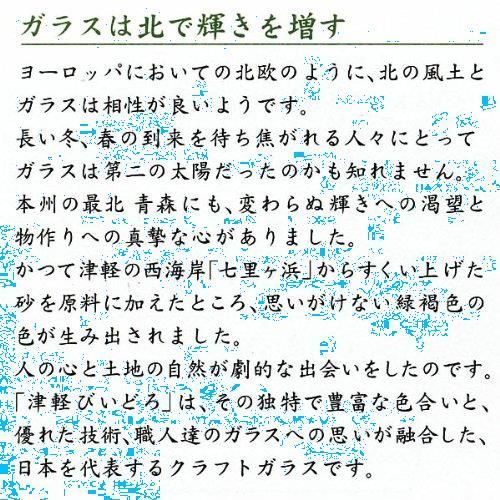 ガラスは北で輝きを増す
ヨーロッパにおいての北欧のように、北の風土と
ガラスは相性が良いようです。
長い冬、春の到来を待ち焦がれる人々にとって
ガラスは第二の太陽だったのかも知れません。
本州の最北 青森にも、変わらぬ輝きへの渇望と
物作りへの真摯な心がありました。
かつて津軽の西海岸「七里ヶ浜」からすくい上げた
砂を原料に加えたところ、思いがけない緑褐色の
色が生み出されました。
人の心と土地の自然が劇的な出会いをしたのです。
「津軽びいどろ」は、その独特で豊富な色合いと、
優れた技術、職人達のガラスへの思いが融合した、
日本を代表するクラフトガラスです。